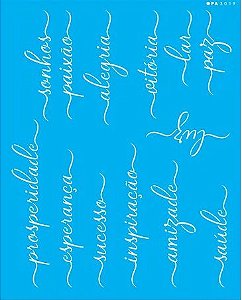 OPA 3017
sonhos
paixão
alegria
vitória
lar
paz
luz
prosperidade
esperança
sucesso
inspiração
amizade
saúde